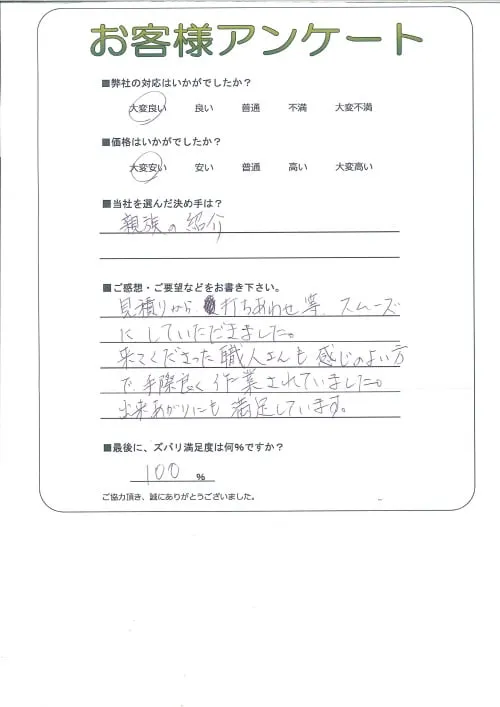 お客様アンケート
■弊社の対応はいかがでしたか?
大変良い 良い 普通 不満 大変不満
■価格はいかがでしたか?
大変安い 安い 普通 高い 大変高い
■当社を選んだ決め手は?
親族の紹介
■ご感想・ご要望などをお書き下さい。
見積りから、打ちあわせ等、スムーズ
にしていただきました。
来てくださった職人さんも感じのよい方
で、手際良く作業されていました。
出来あがりにも満足しています。
■最後に、ズバリ満足度は何%ですか?
100 %
ご協力頂き、誠にありがとうございました。